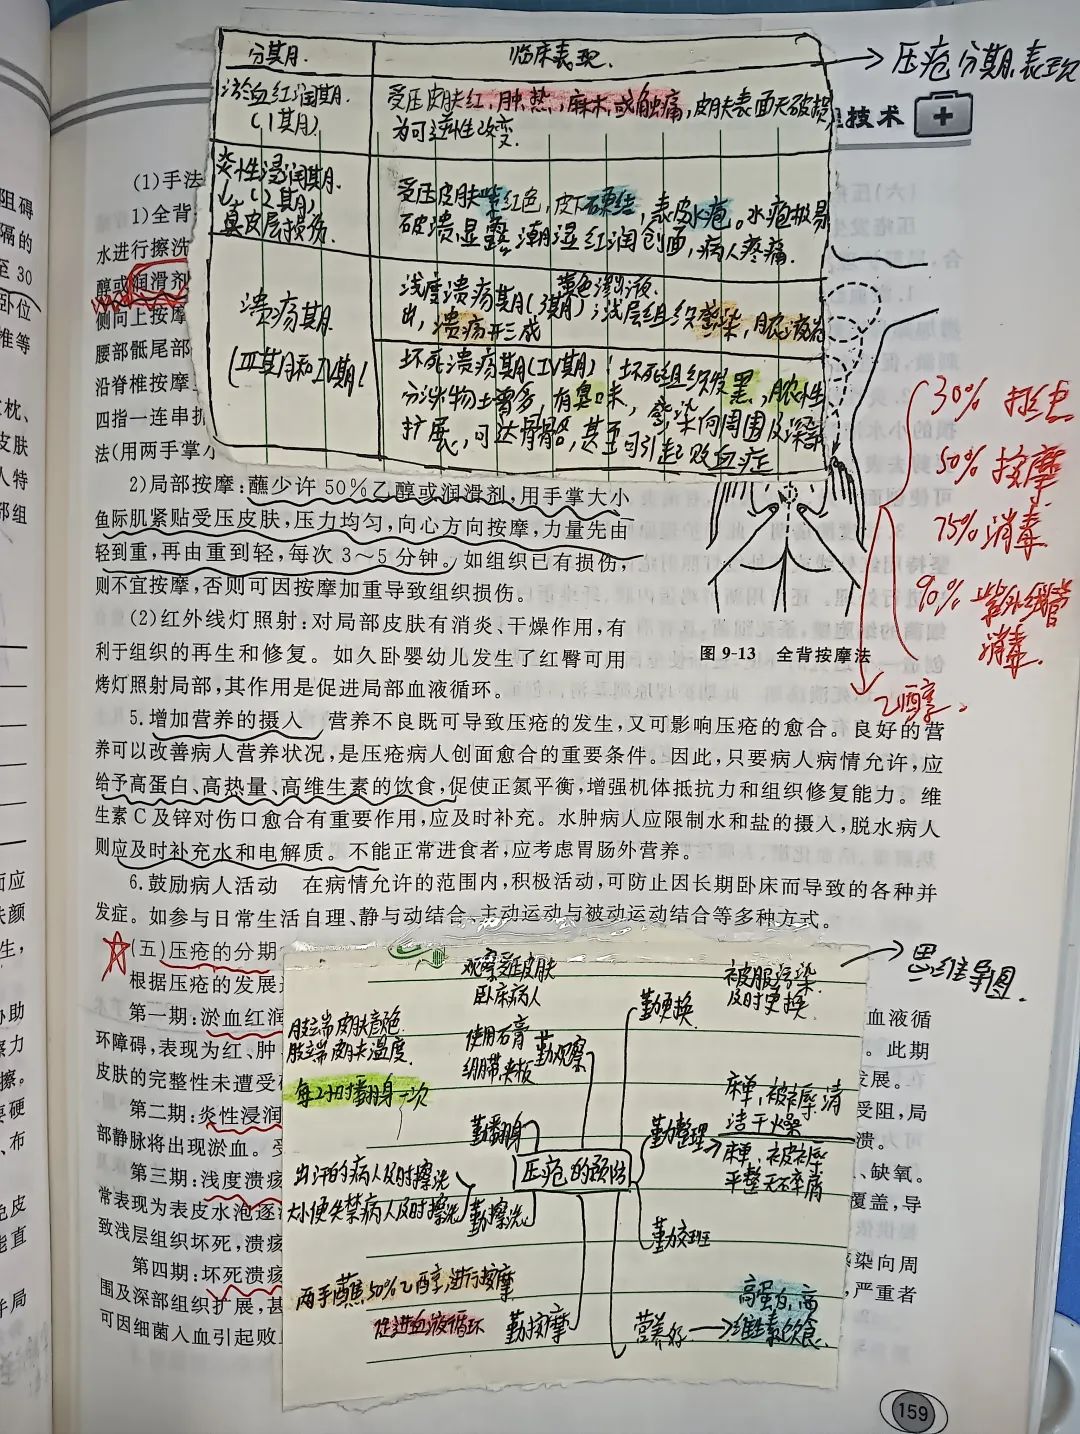 分期.
临床表现.
→压疮分期表现
淤血红润期.
(1期)
受压皮肤红,肿,热,麻木,或触痛,皮肤表面无破损,
为可逆性改变.
炎性浸润期.
↳(2期)
真皮层损伤.
受压皮肤紫红色,皮下硬结,表皮水疱。水疱极易
破溃,显露潮湿红润创面,病人疼痛.
溃疡期.
(Ⅲ期和Ⅳ期)
黄色渗出液.
浅度溃疡期(3期);浅层组织感染,脓液流
出,溃疡形成
坏死溃疡期(Ⅳ期):坏死组织发黑,脓性
分泌物增多,有臭味,感染向周围及深部
扩展,可达骨骼,甚至可引起败血症
技术
(1)手法
1)全背
水进行擦洗
醇或润滑剂
侧向上按摩
腰部骶尾部
沿脊椎按摩
四指一连串扌
法(用两手掌小
2)局部按摩:蘸少许50%乙醇或润滑剂,用手掌大小
鱼际肌紧贴受压皮肤,压力均匀,向心方向按摩,力量先由
轻到重,再由重到轻,每次3～5分钟。如组织已有损伤,
则不宜按摩,否则可因按摩加重导致组织损伤。
(2)红外线灯照射:对局部皮肤有消炎、干燥作用,有
利于组织的再生和修复。如久卧婴幼儿发生了红臀可用
烤灯照射局部,其作用是促进局部血液循环。
30%
50% 按摩
75% 消毒
90% 紫外线管
消毒.
乙醇.
图 9-13 全背按摩法
5.增加营养的摄入 营养不良既可导致压疮的发生,又可影响压疮的愈合。良好的营
养可以改善病人营养状况,是压疮病人创面愈合的重要条件。因此,只要病人病情允许,应
给予高蛋白、高热量、高维生素的饮食,促使正氮平衡,增强机体抵抗力和组织修复能力。维
生素C及锌对伤口愈合有重要作用,应及时补充。水肿病人应限制水和盐的摄入,脱水病人
则应及时补充水和电解质。不能正常进食者,应考虑胃肠外营养。
6.鼓励病人活动 在病情允许的范围内,积极活动,可防止因长期卧床而导致的各种并
发症。如参与日常生活自理、静与动结合、主动运动与被动运动结合等多种方式。
(五)压疮的分期
根据压疮的发展
第一期:淤血红润
血液循
环障碍,表现为红、肿
。此期
皮肤的完整性未遭受
发展。
第二期:炎性浸润
受阻,局
部静脉将出现淤血。受
溃。
第三期:浅度溃疡
、缺氧。
常表现为表皮水泡逐
覆盖,导
致浅层组织坏死,溃疡
第四期:坏死溃疡
感染向周
围及深部组织扩展,甚
,严重者
可因细菌入血引起败
→思维导图.
压疮的预防
观察受压皮肤
卧床病人
肢端皮肤颜色
肢端皮肤温度.
使用石膏
绷带夹板
勤观察
每2小时翻身一次
勤翻身
出汗的病人及时擦洗
大小便失禁病人及时擦洗
勤擦洗
两手蘸50%乙醇进行按摩
促进血液循环
勤按摩
勤更换
被服污染
及时更换
勤整理
床单,被褥清
洁干燥
床单,被褥
平整无
勤交班
营养好→
高蛋白,高
维生素饮食.
159